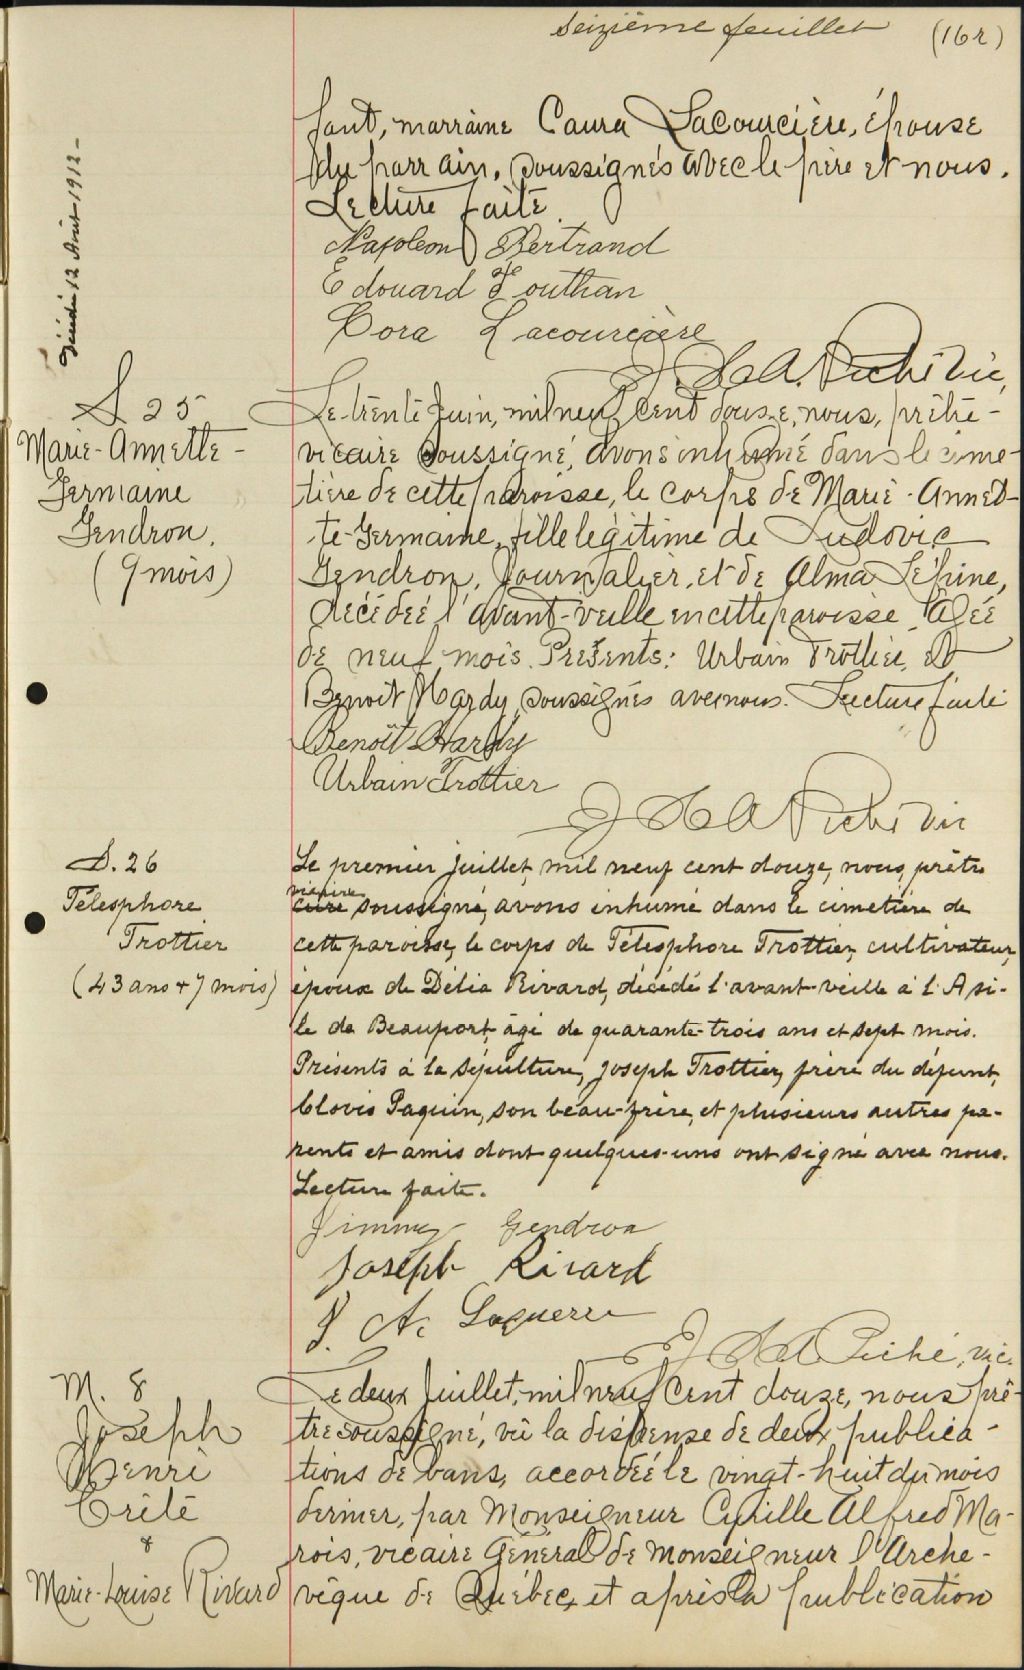 seizième feuillet (16r)
fant, marraine Caura Lacourcière, épouse
du parrain, soussignés avec le père et nous.
Lecture faite
Napoleon Bertrand
Edouard Houthan
Cora Lacourcière
J. H. A. Piché Vic,
Jeudi 12 Août 1912 -
S 25
Marie-Annette-
Germaine
Gendron.
(9 mois)
Le trente Juin, mil neuf cent douze, nous, prêtre-
vicaire soussigné, avons inhumé dans le cime-
tière de cette paroisse, le corps de Marie-Annet-
te-Germaine, fille legitime de Ludovic
Gendron, Journalier, et de Alma Lépine,
décédée l'avant-veille en cette paroisse, agée
de neuf mois. Présents: Urbain Trottier, et
Benoit Hardy, soussignés avec nous. Lecture faite
Benoît Hardy
Urbain Trottier
J H A Piché Vic
S. 26
Télesphore
Trottier
(43 ans + 7 mois)
Le premier juillet, mil neuf cent douze, nous, prêtre
vicaire
curé soussigné, avons inhumé dans le cimetière de
cette paroisse, le corps de Télesphore Trottier, cultivateur,
époux de Délia Rivard, décédé l'avant-veille à l'Asi-
le de Beauport, âgé de quarante-trois ans et sept mois.
Présents à la sépulture, Joseph Trottier, frère du défunt,
Clovis Paquin, son beau-frère, et plusieurs autres pa-
rents et amis dont quelques-uns ont signé avec nous.
Lecture faite.
Jimmy Gendron
Joseph Rivard
J. A. Laguerre
J H A Piché, vic.
M. 8
Joseph
Henri
Crête
&
Marie-Louise Rivard
Le deux Juillet, mil neuf cent douze, nous prê-
tre soussigné, vû la dispense de deux publica-
tions de bans, accordée le vingt-huit du mois
dernier, par Monseigneur Cyrille Alfred Ma-
rois, vicaire Général de Monseigneur l'Arche-
vêque de Québec, et après la publication